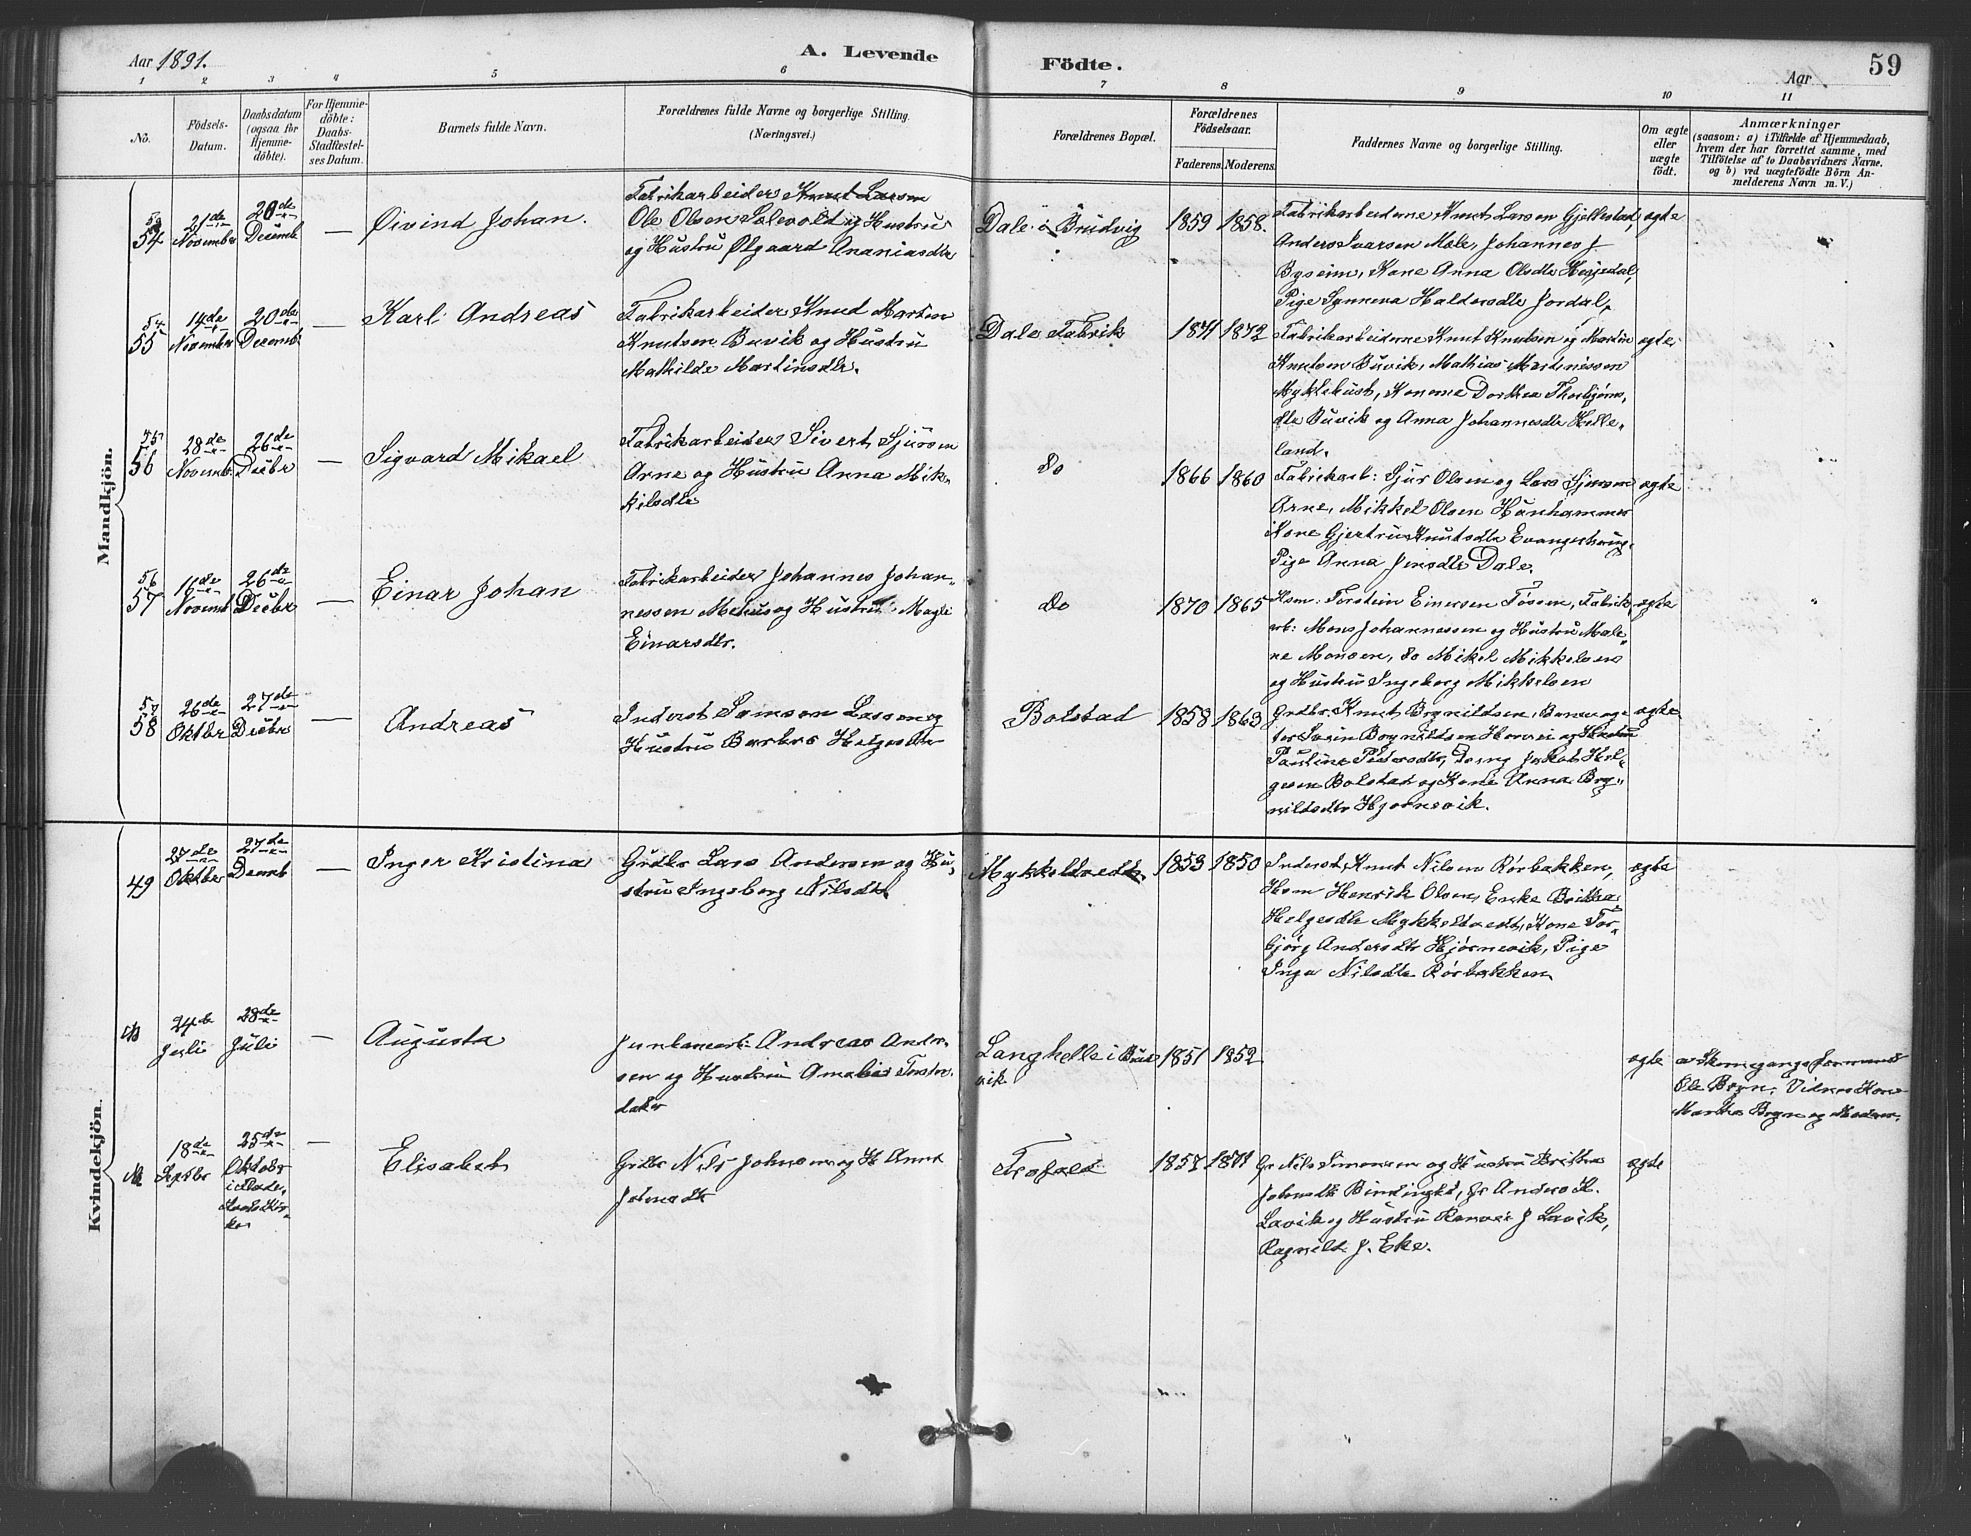 Aar 1891.
A. Levende
Födte.
Aar
59
1 2 3 4 5 6 7 8 9 10 11
No.
Födsels-
Datum.
Daabsdatum
(ogsaa for
Hjemme-
döbte).
For Hjemme-
döbte:
Daabs-
Stadfæstel-
ses Datum.
Barnets fulde Navn.
Forældrenes fulde Navne og borgerlige Stilling.
(Næringsvei.)
Forældrenes Bopæl.
Forældrenes
Födselsaar.
Faderens. Moderens.
Faddernes Navne og borgerlige Stilling.
Om ægte
eller
uægte
født.
Anmærkninger
(saasom: a) i Tilfælde af Hjemmedaab,
hvem der har forrettet samme, med
Tilföielse af to Daabsvidners Navne.
og b) ved uægtefödte Börn An-
melderens Navn m. V.)
Mandkjön.
54
21de
November
20de
Decemb
—
Øivind Johan.
Fabrikarbeider Knut Larsen
Ole Olsen Solevold og Hustru
og Hustru Olgaard Ananiasdtr
Dale i Brudvig
1859 1858.
Fabrikarbeiderne Knut Larsen Gjellestad,
Anders Ivarsen Mæle, Johannes J
Byseim, Kone Anna Olsdtr Heggedal,
Pige Synneva Haldorsdtr Jordal,
ægte
54
55
14de
November
20de
Decemb
—
Karl Andreas
Fabrikarbeider Knud Martin
Knutsen Buvik og Hustru
Mathilde Martinsdtr.
Dale Fabrik
1871 1872
Fabrikarbeiderne Knut Knutsen og Martin
Knutsen Buvik, Mathias Martinissen
Myklebust, Konerne Dorthea Thorbjørns,
dtr Buvik og Anna Johannesdtr Helle,
land.
ægte
55
56
28de
Novemb
26de
Decbr
—
Sigvard Mikael
Fabrikarbeider Sivert Sjursen
Arne og Hustru Anna Mik,
kelsdtr
do
1866 1860
Fabrikarb: Sjur Olsen og Lars Sjursen
Arne, Mikkel Olsen Hunhammer
Kone Gjertrud Knutsdtr Evangerhaug,
Pige Anna Jensdtr Dale.
ægte
56
57
11de
Novemb
26de
Decbr
—
Einar Johan
Fabrikarbeider Johannes Johan-
nessen Mehus og Hustru Magli
Einarsdtr.
do
1870 1865
Hsm: Torstein Einersen Tøssen, Fabrik
arb: Mons Johannessen og Hustru Male,
ne Monsen, do Mikel Mikkelsen
og Hustru Ingeborg Mikkelsen
ægte
57
58
26de
Oktbr
27de
Decbr
—
Andreas
Inderst Samson Larsen og
Hustru Barbro Helgesdtr
Bolstad
1858 1863
Grdbr. Knut Brynildsen,
Brynildsen Horvei og Hustru
Pauline Pedersdtr, Jakob Hel,
gesen Bolstad og Kone Anna Bry,
nildsdtr Hjørnevik.
ægte
Kvindekjön.
49
27de
Oktber
27de
Decmb
—
Inger Kristina
Grdbr Lars Andersen og Hu,
stru Ingeborg Nilsdtr
Mykkeltvedt.
1853 1850
Inderst Knut Nilsen Rørbakken,
Hsm Henrik Olsen, Enke Brithe
Helgesdtr Mykkeltvedt, Kone Tor-
bjørg Andersdtr Hjørnevik, Pige
Inga Nilsdtr Rørbakken
ægte
24de
Juli
28de
Juli
—
Augusta
Andreas Ander,
sen og Hustru Amalia Torsten,
datter
Langhelle i Brud
vik
1851 1852
ægte
a Skomager Formand
Ole Bryn, Vidner Kone
Martha Bryn og Moderen.
18de
Septbr
25de
Oktober
—
Elisabeth
Grdbr Nils Johnsen og H Anna
Johnsdtr
Trofald
1857 1871
Gr Nils Simonsen og Hustru Brithe
Johnsdtr Bindingbø, Gr Anders K.
Lavik og Hustru Ranvei J Lavik,
Ragnild J. Eke.
ægte